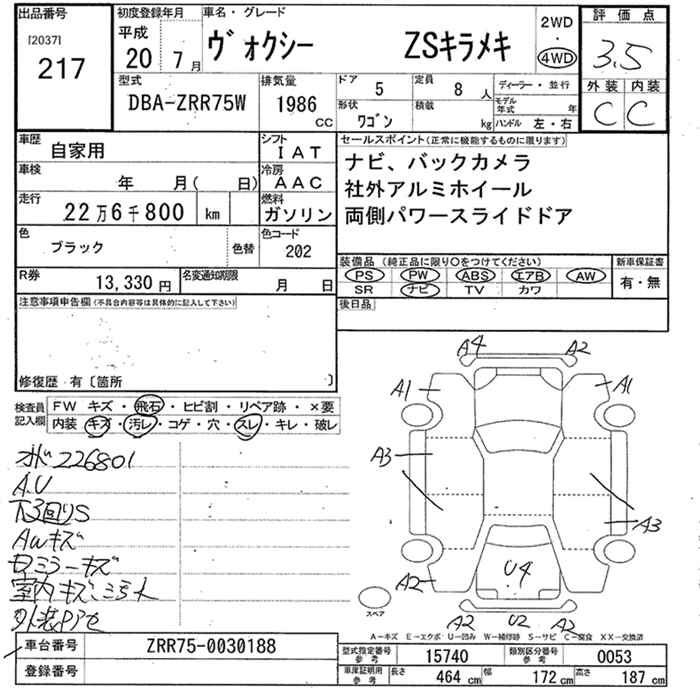 出品番号
[2037]
217
初度登録年月
平成
20年 7月
車名・グレード
ヴォクシー ZSキラメキ
2WD
・
4WD
評価点
3.5
外装 内装
C C
型式
DBA-ZRR75W
排気量
1986 cc
ドア 5
定員 8人
形状 ワゴン
積載 kg
ディーラー・並行
モデル年式 年
ハンドル 左・右
車歴
自家用
シフト
IAT
車検
年 月( 日)
冷房
AAC
走行
22万6千800 km
燃料
ガソリン
色
ブラック
色替
色コード
202
R券
13,330円
名変通知期限
月 日
セールスポイント(正常に機能するものに限ります)
ナビ、バックカメラ
社外アルミホイール
両側パワースライドドア
装備品(純正品に限り○をつけてください)
PS PW ABS エアB AW
SR ナビ TV カワ
新車保証書
有・無
後日品
注意事項申告欄(不具合内容等は具体的に記入して下さい)
修復歴 有〔箇所 〕
検査員記入欄
FW キズ・飛石・ヒビ割・リペア跡・×要
内装 キズ・汚レ・コゲ・穴・スレ・キレ・破レ
226801
A.U
下3回りS
AWキズ
ミラーキズ
室内キズ
A4 A2
A1 A1
A3
A3
A2 U4
A2 U2 A2
スペア
A-キズ E-エクボ U-凹み W-補修跡 S-サビ C-腐食 XX-交換済
車台番号
ZRR75-0030188
登録番号
型式指定番号 参考
15740
類別区分番号 参考
0053
車庫証明用 参考
長さ 464 cm 幅 172 cm 高さ 187 cm